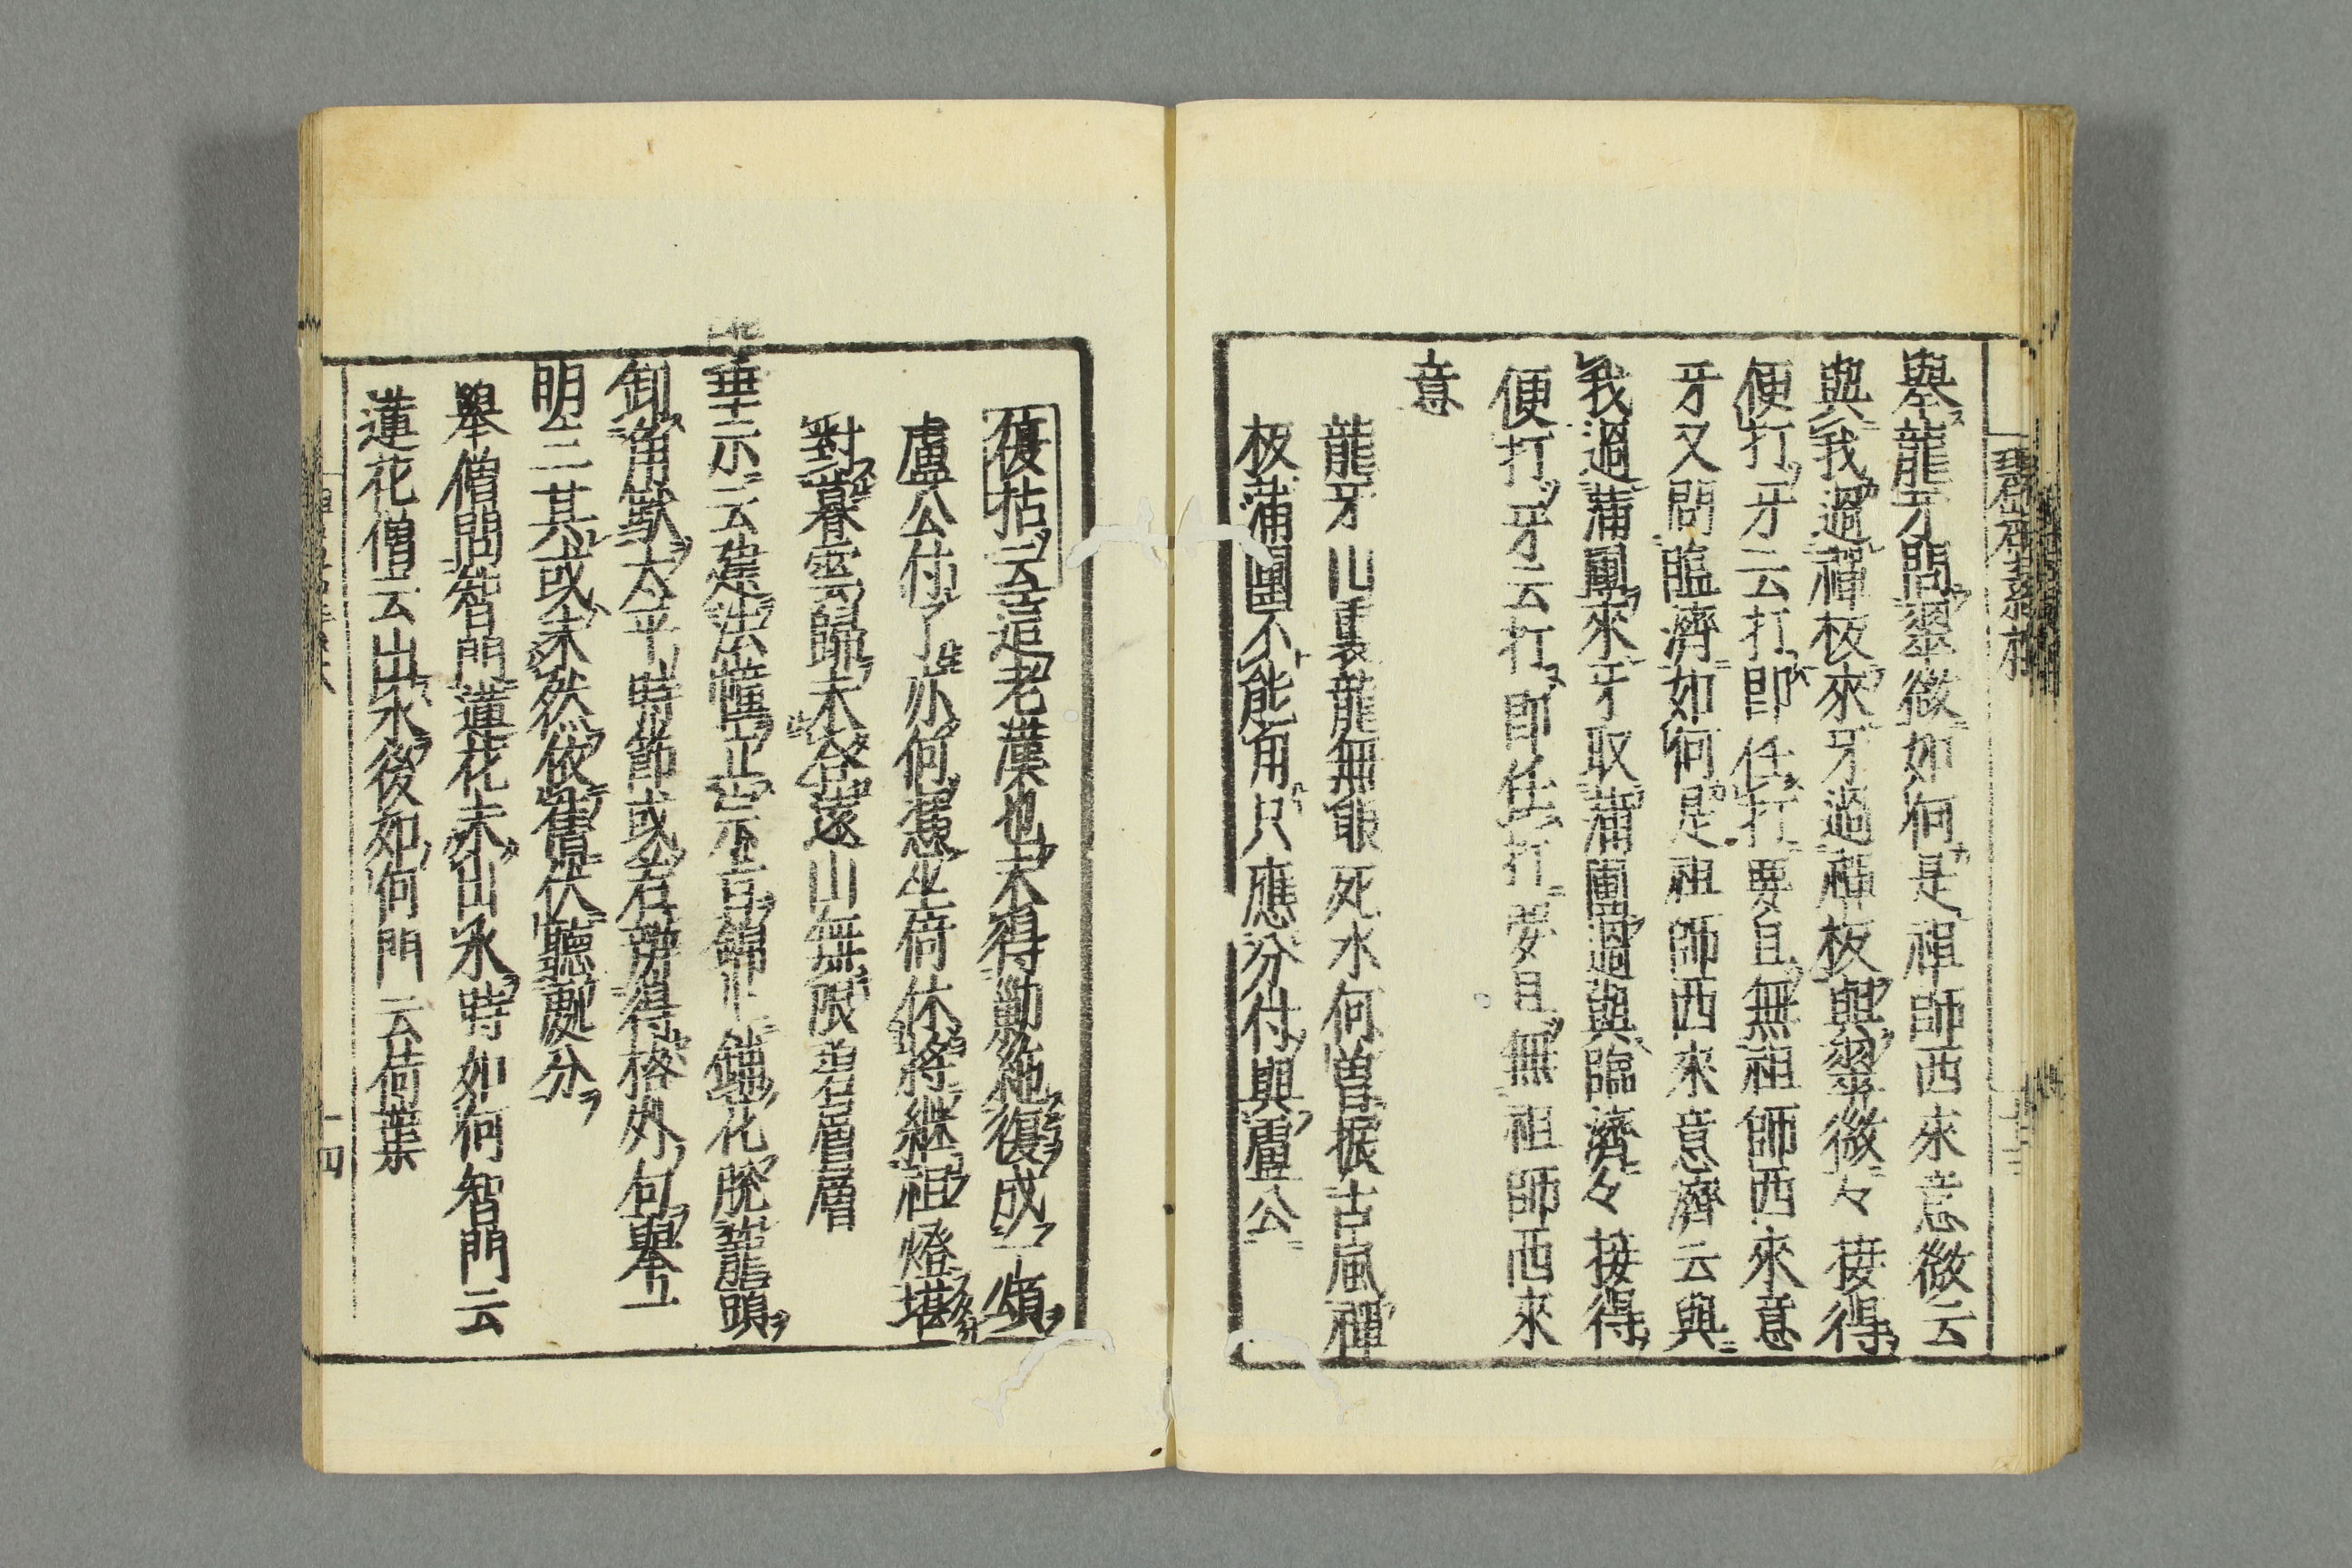 舉龍牙問翠微如何是祖師西來意微云
與我過禪板來牙過禪板與翠微々接得
便打牙云打即任打要且無祖師西來意
牙又問臨濟如何是祖師西來意濟云與
我過蒲團來牙取蒲團過與臨濟々接得
便打牙云打即任打要且無祖師西來
意
龍牙山裏龍無眼死水何曽振古風禪
板蒲團不能用只應分付與盧公
復拈云這老漢也未得勦絶復成一頌
盧公付了亦何憑坐倚休將継祖燈堪
對暮雲歸未合遠山無限碧層層
垂示云建法幢立宗旨錦上鋪花脫籠頭
卸角馱太平時節或若辨得格外句舉一
明三其或未然依舊伏聽處分
舉僧問智門蓮花未出水時如何智門云
蓮花僧云出水後如何門云荷葉
十四